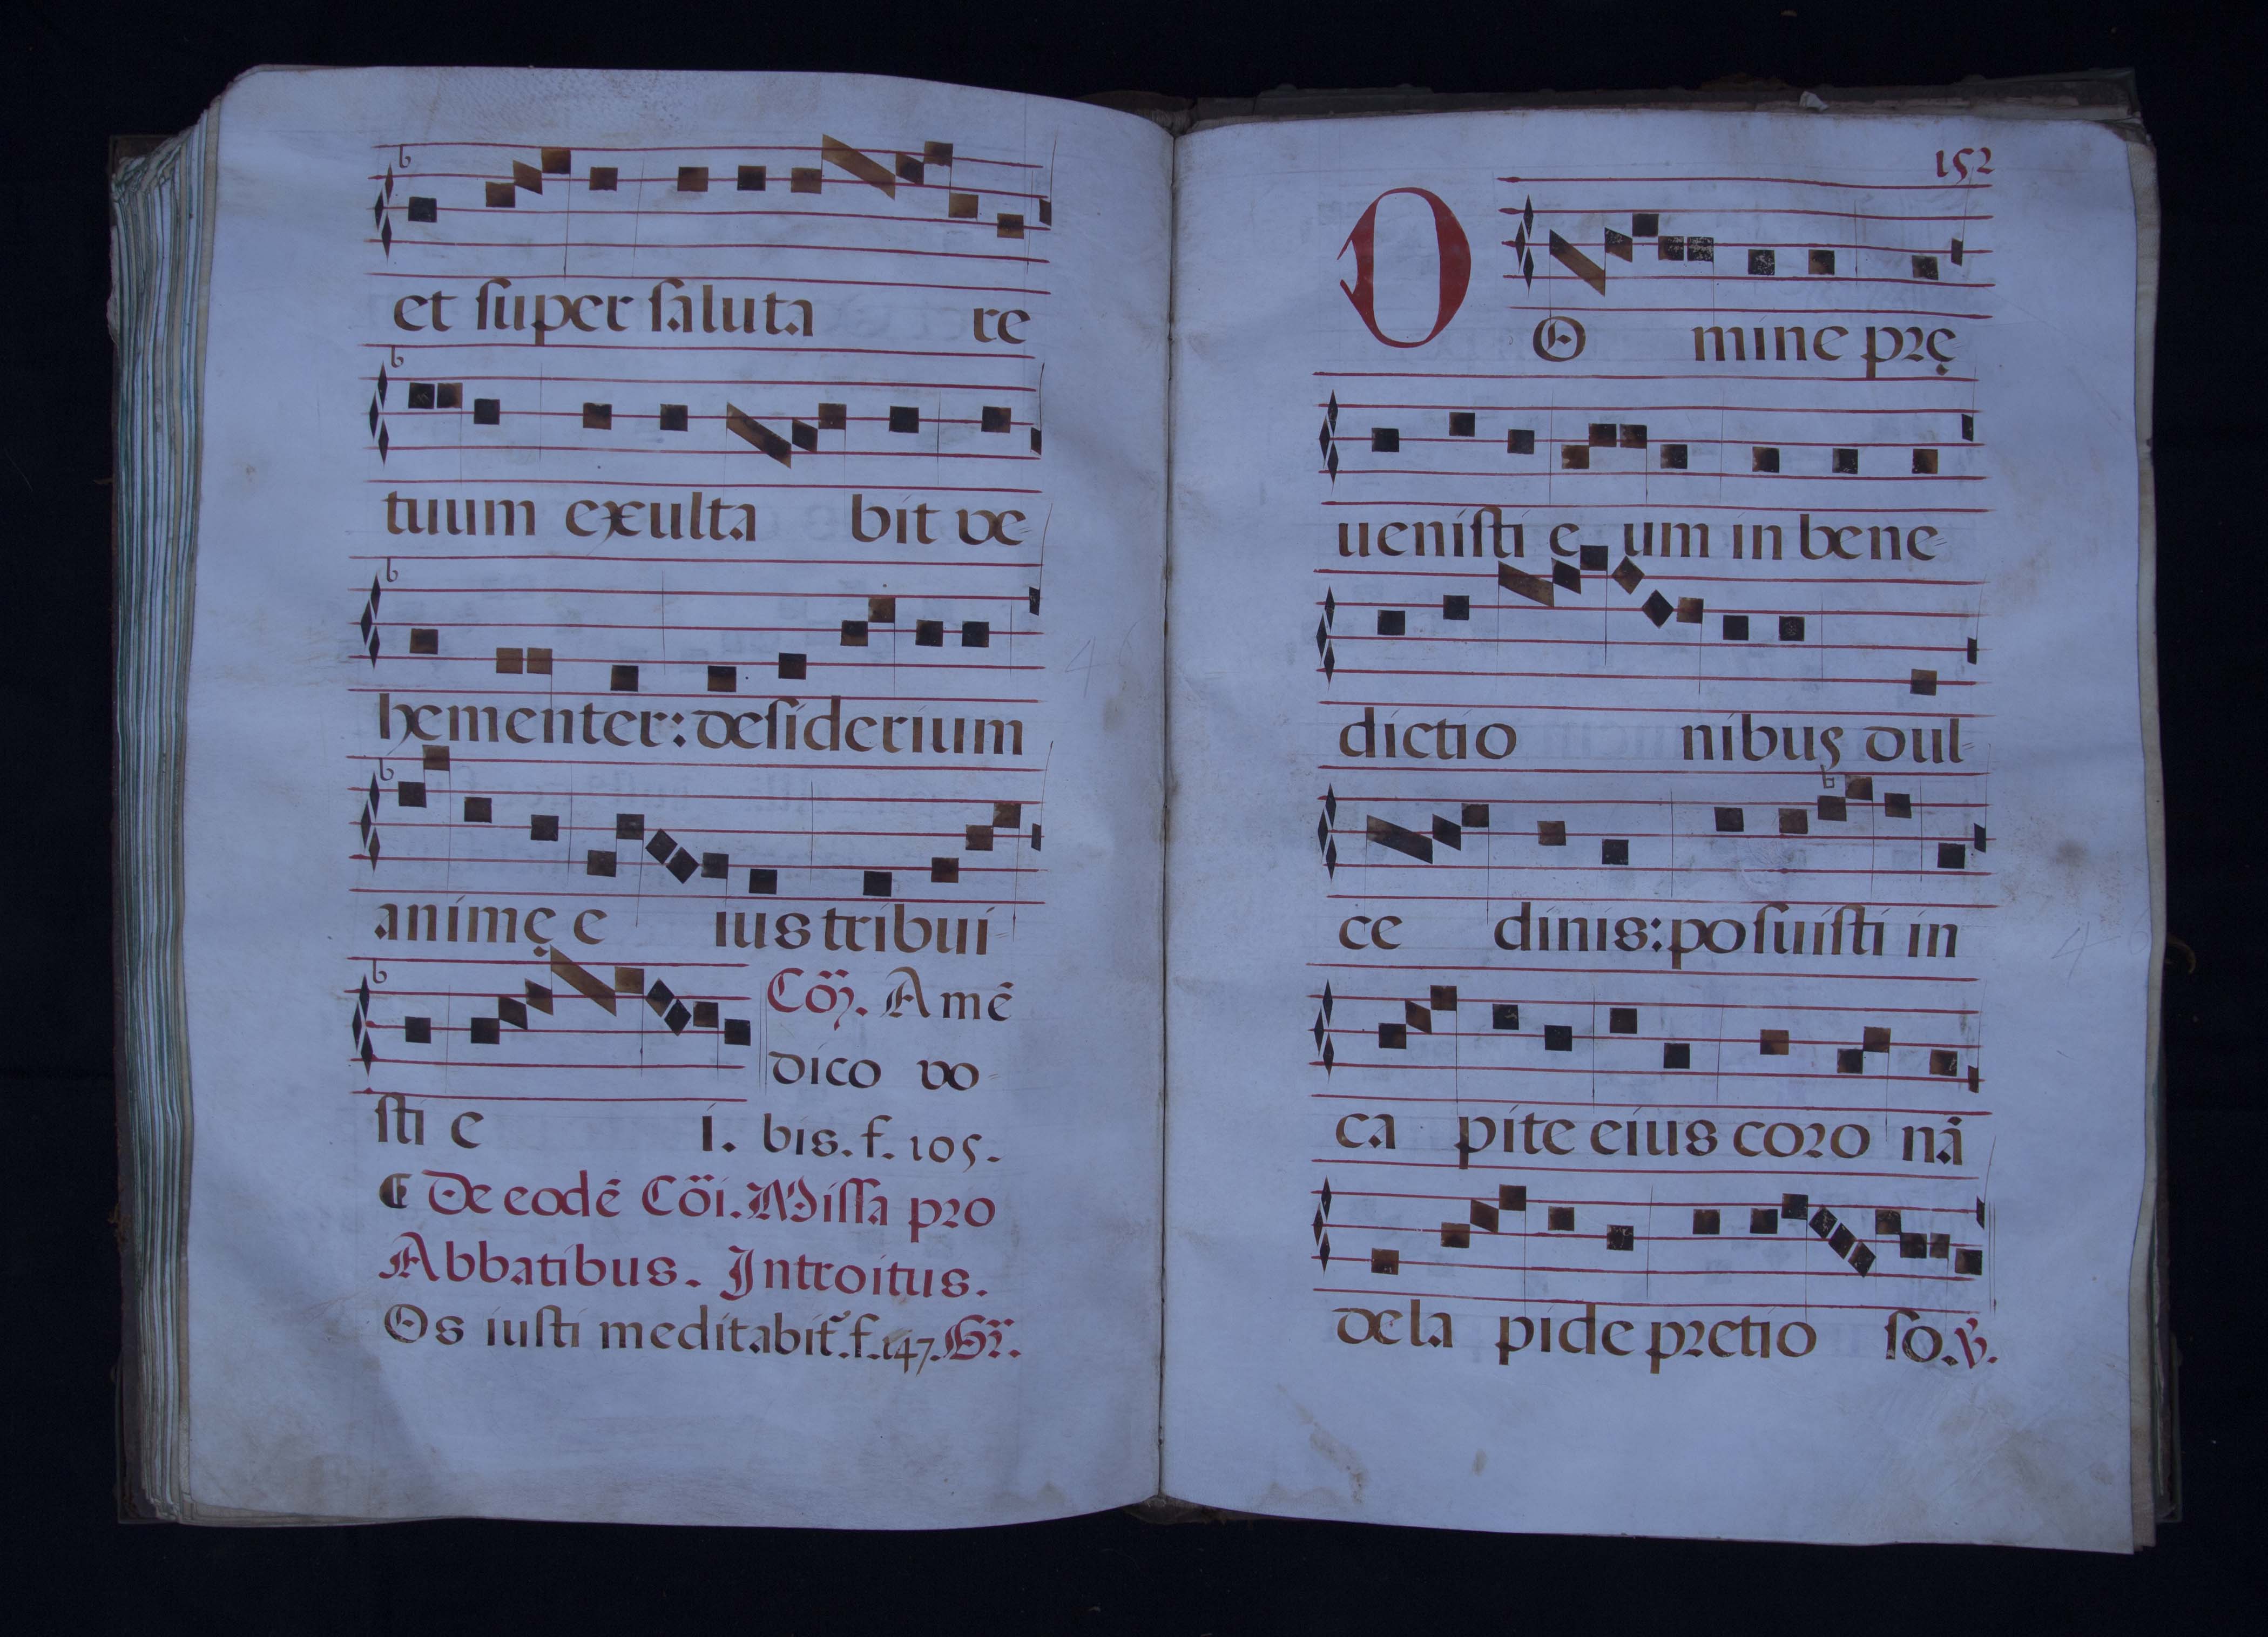 et super saluta re
tuum exulta bit ve
hementer: desiderium
animę e ius tribui-
sti e i.
Cōi. Amē
dico vo-
bis. f. 105.
De eodē Cōi. Missa pro
Abbatibus. Introitus.
Os iusti meditabit̃. f. 147. Gr̃.
152
D O mine prę
uenisti e um in bene-
dictio nibus dul-
ce dinis: posuisti in
ca pite eius coro nā
de la pide pretio so. ℣.